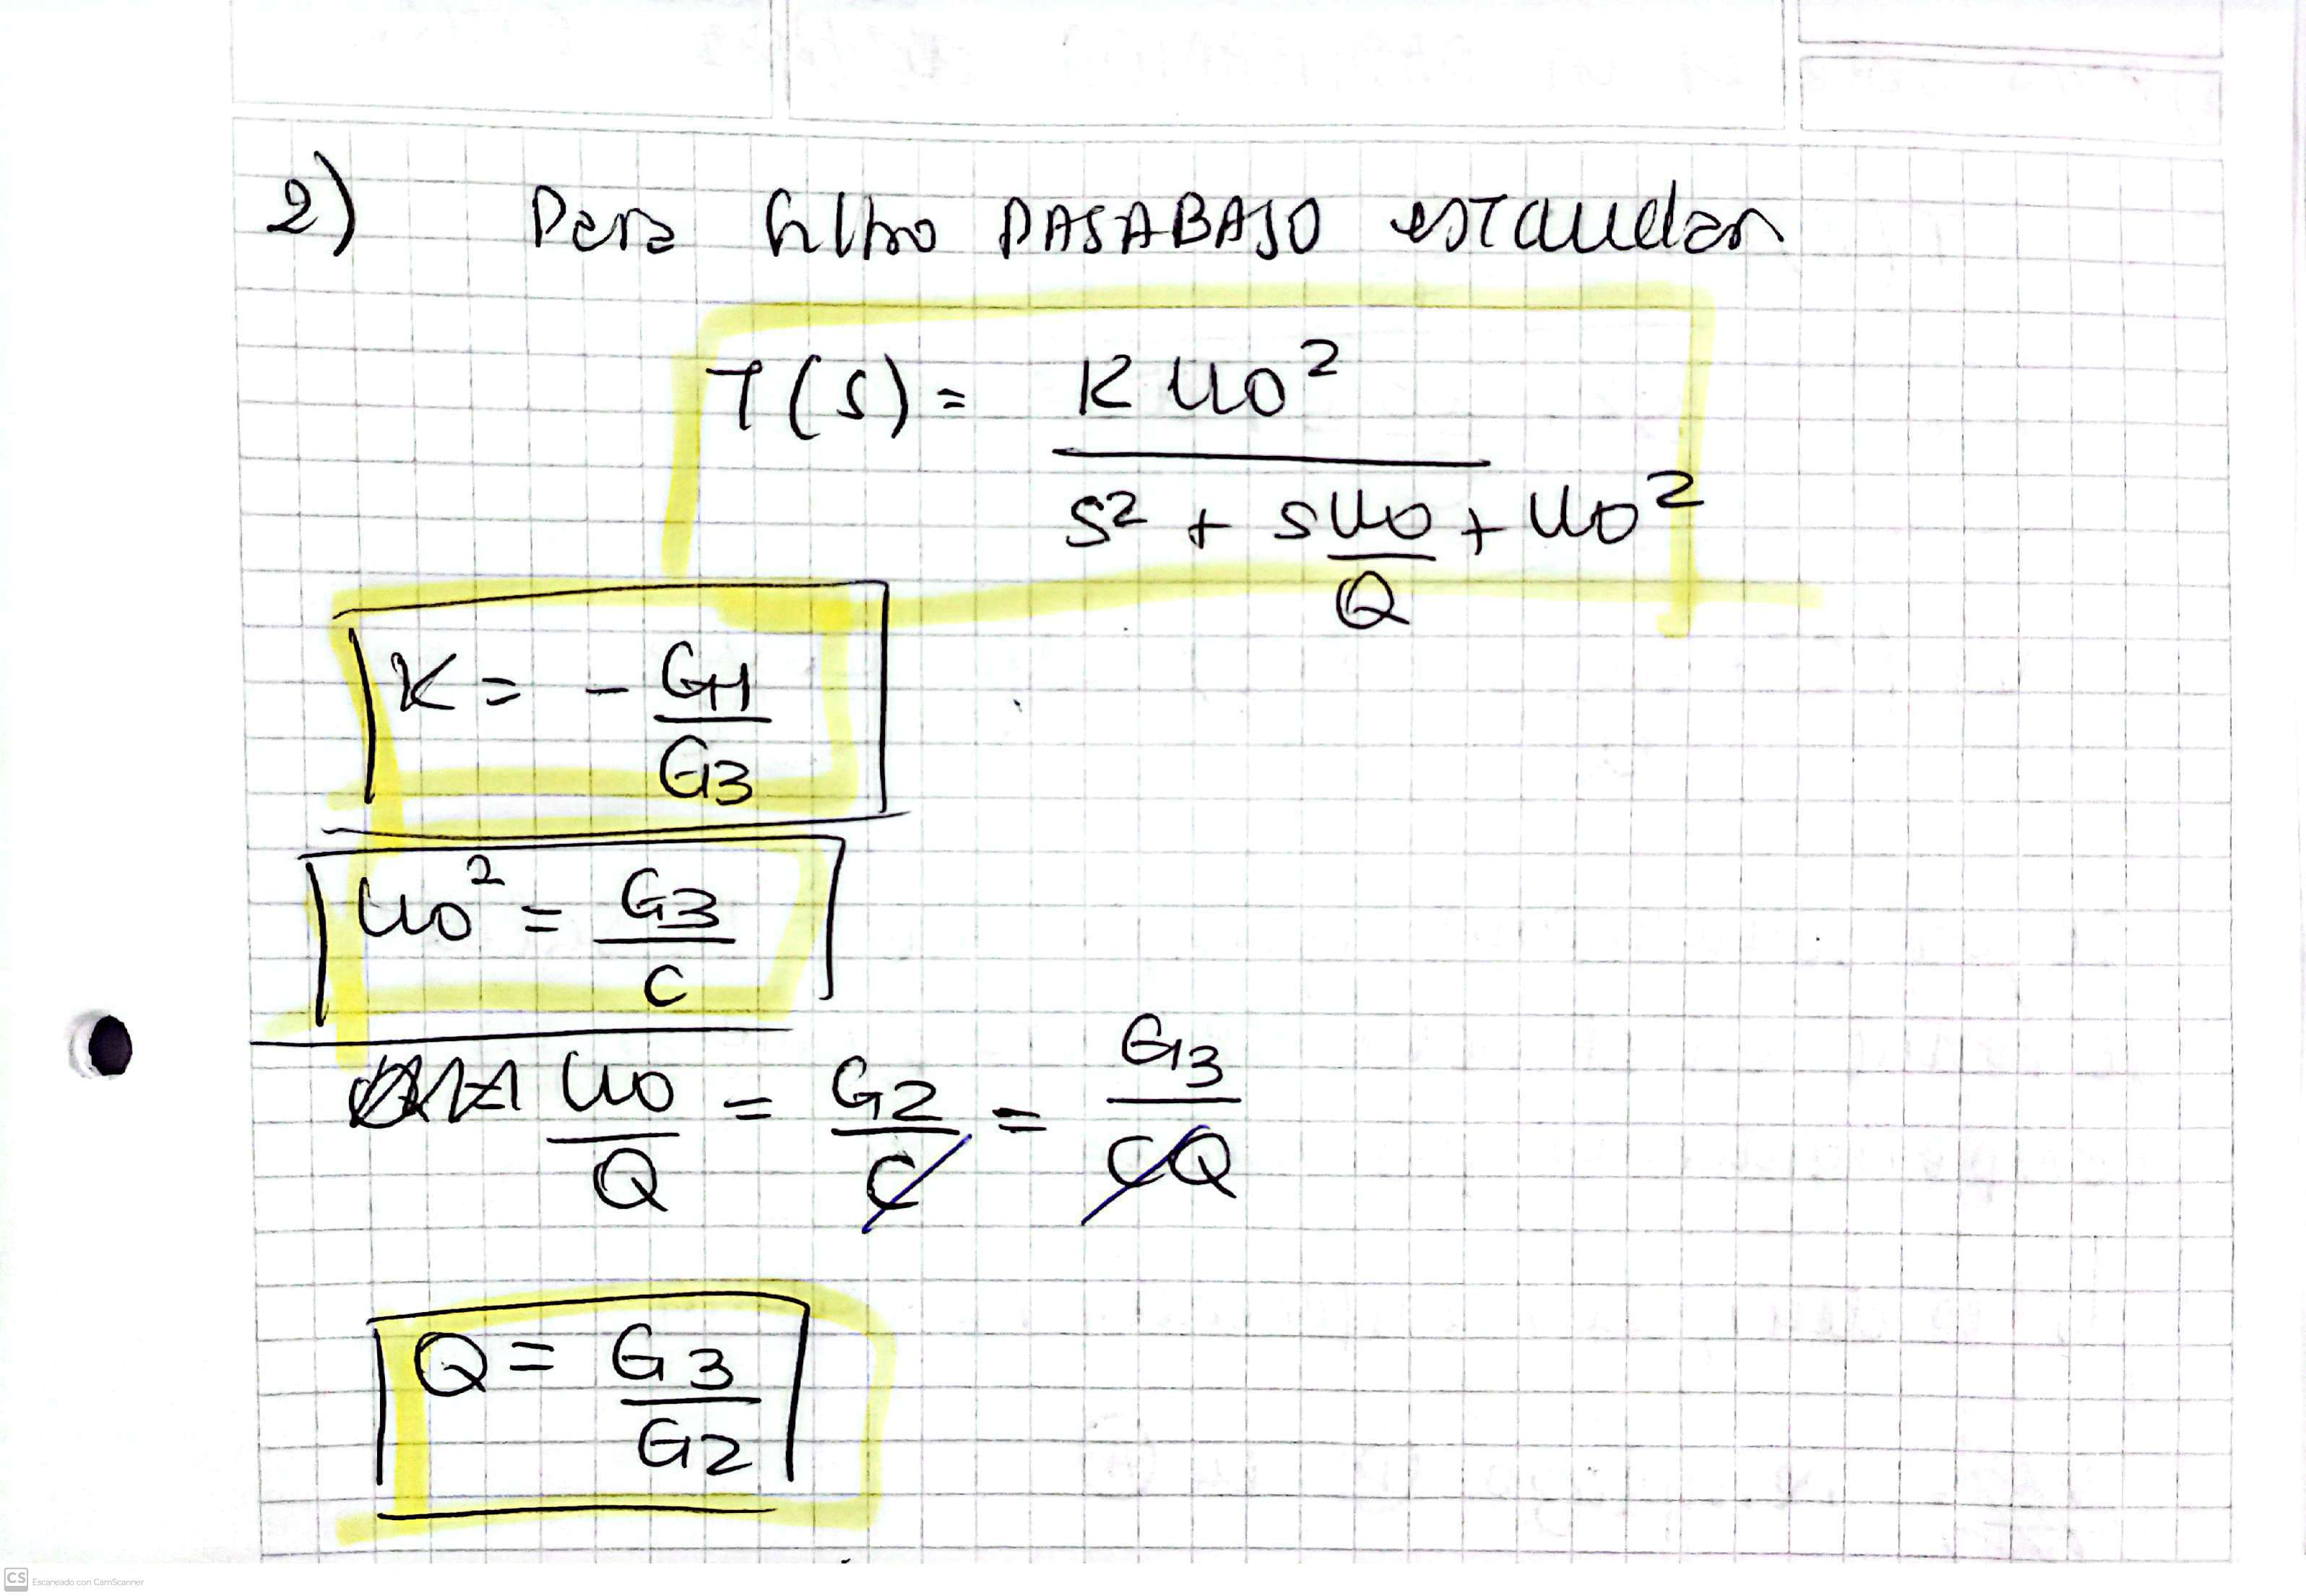 2) Para filtro PASABAJO estandar
T(s) = K ω0² / (s² + s ω0/Q + ω0²)
K = - G1/G3
ω0² = G3/C
ω0/Q = G2/C = G3/CQ
Q = G3/G2
CS Escaneado con CamScanner